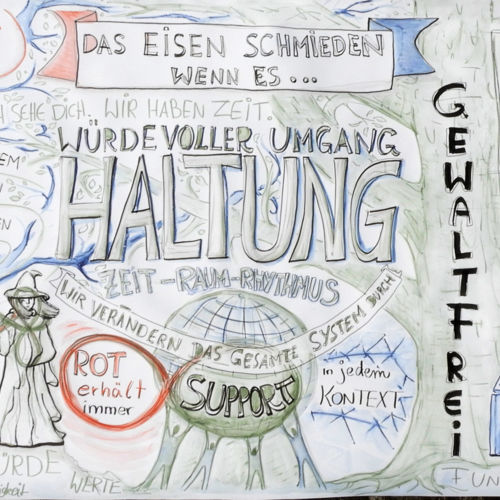 DAS EISEN SCHMIEDEN
WENN ES...
SEHE DICH. WIR HABEN ZEIT.
WÜRDEVOLLER UMGANG
HALTUNG
ZEIT-RAUM-RHYTHMUS
WIR VERÄNDERN DAS GESAMTE SYSTEM DURCH
ROT
erhält
immer
SUPPORT
in jedem
KONTEXT
GEWALTFREI
WERTE